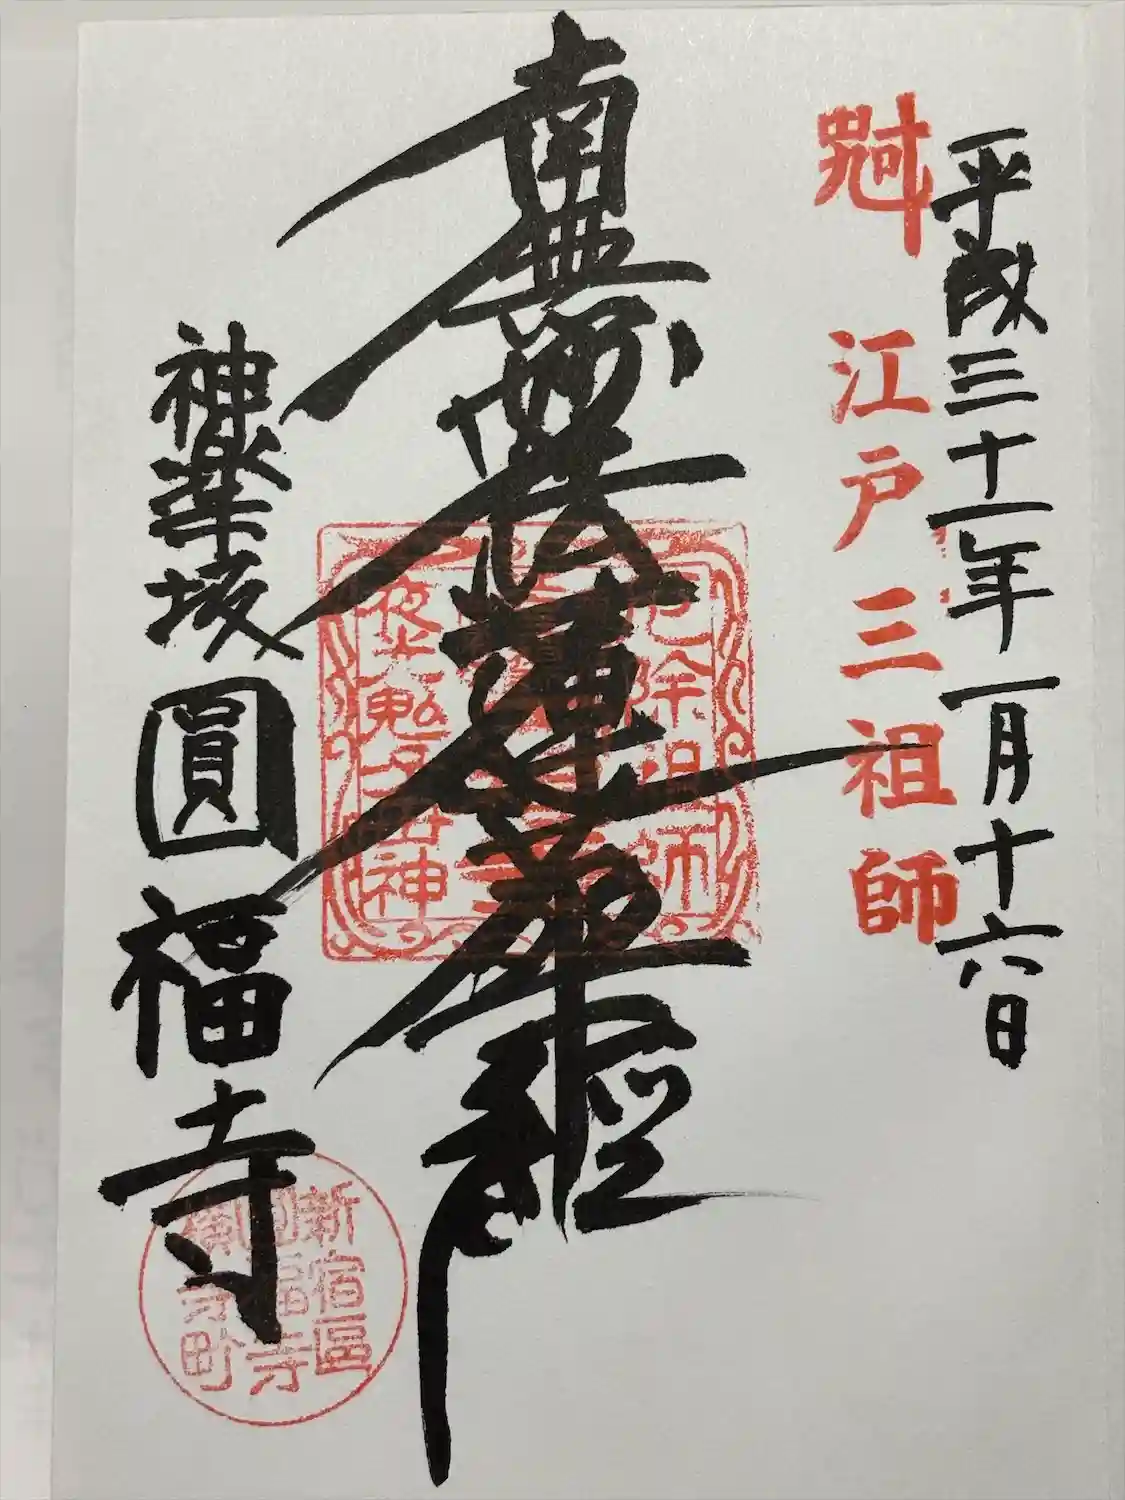 平成三十一年一月十六日
江戸三祖師
南無妙法蓮華經
厄除祖師
神楽坂 圓福寺
新宿區
圓福寺
横寺町